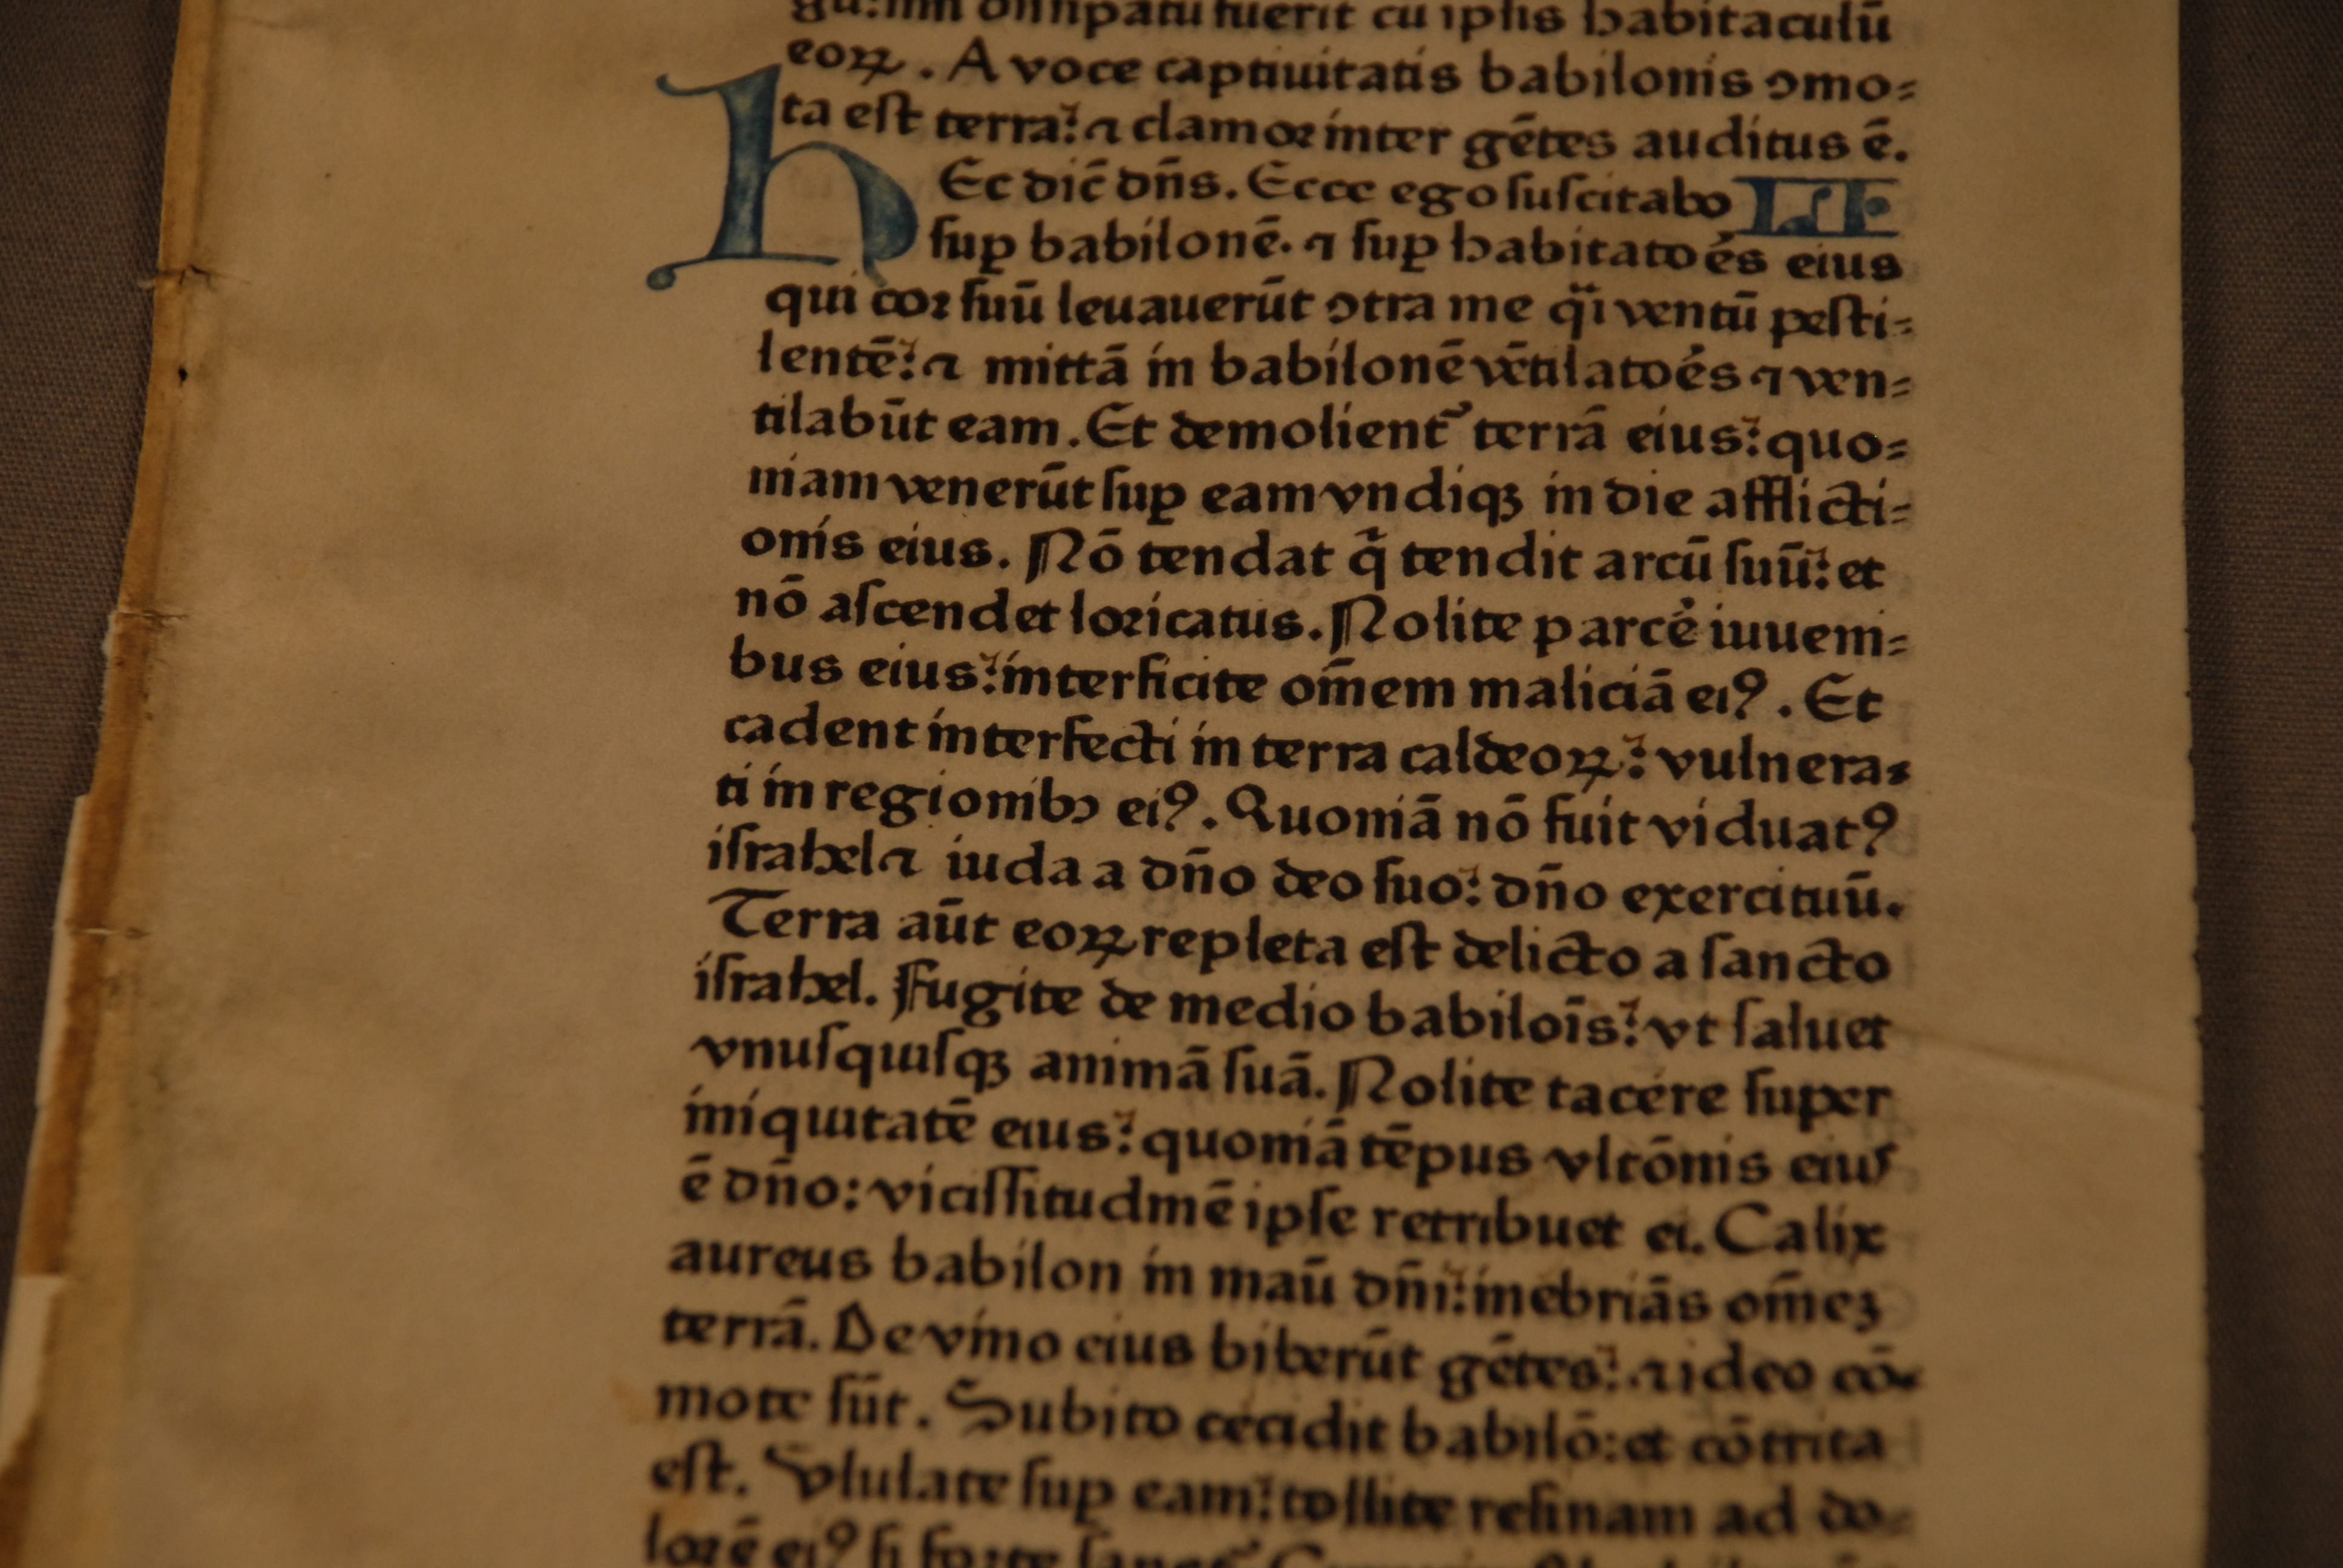 dissipatū fuerit cū ip̄sis habitaculū
eoꝝ. A voce captiuitatis babilonis ↄmo⸗
ta est terra: ⁊ clamor inter gētes auditus ē.
HEc dic̄ dn̄s. Ecce ego suscitabo LI
suꝑ babilonē. ⁊ suꝑ habitatoe᷒s eius
qui cor suū leuauerūt ↄtra me qͣi ventū pesti⸗
lentē: ⁊ mittā in babilonē vētilatoe᷒s ⁊ ven⸗
tilabūt eam. Et demolient᷑ terrā eius: quo⸗
niam venerūt suꝑ eam vndiqꝫ in die afflicti⸗
onis eius. Nō tendat q̄ tendit arcū suū: et
nō ascendet loricatus. Nolite parce᷒ iuueni⸗
bus eius: interficite om̄em maliciā eiꝰ. Et
cadent interfecti in terra caldeoꝝ: vulnera⸗
ti in regionibꝫ eiꝰ. Quoniā nō fuit viduatꝰ
israhel ⁊ iuda a dn̄o deo suo: dn̄o exercituū.
Terra aūt eoꝝ repleta est delicto a sancto
israhel. Fugite de medio babiloīs: vt saluet
vnusquisqꝫ animā suā. Nolite tacere super
iniquitatē eius: quoniā tēpus vltōnis eius
ē dn̄o: vicissitudinē ipse retribuet ei. Calix
aureus babilon in maū dn̄i: inebriās om̄eꝫ
terrā. De vino eius biberūt gētes: ⁊ ideo cō⸗
mote sūt. Subito cecidit babilō: et cōtrita
est. Vlulate suꝑ eam: tollite resinam ad do⸗
lorē eiꝰ si forte